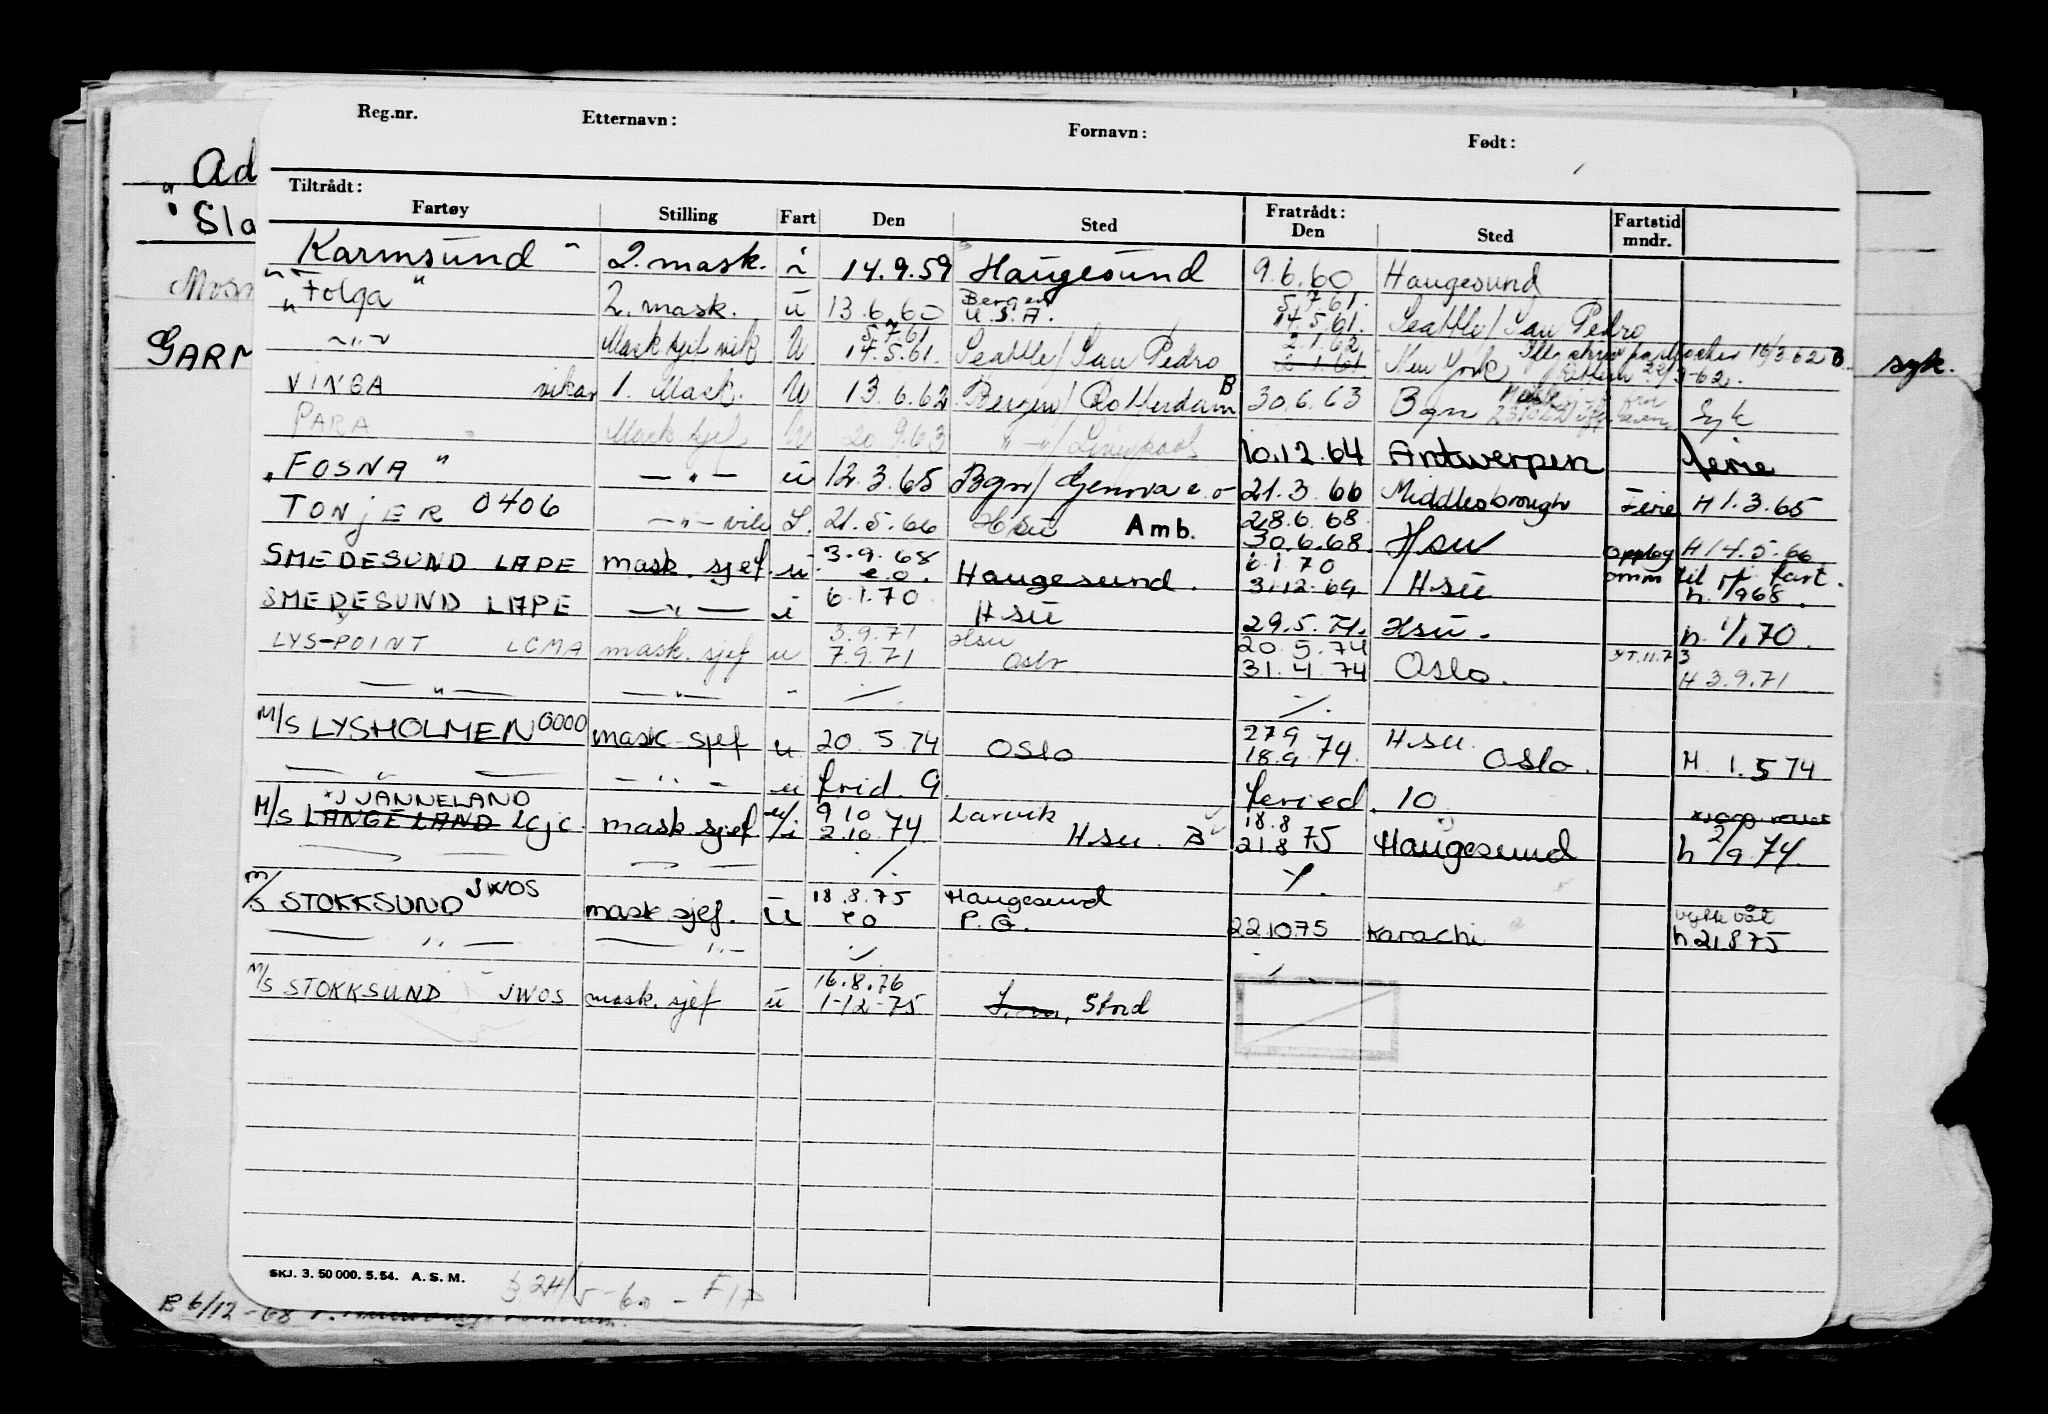 Reg.nr. Etternavn: Fornavn: Født:
Ad
Tiltrådt: Fratrådt:
Fartøy Stilling Fart Den Sted Den Sted Fartstid mndr.
Sla
Karmsund 2. mask. i 14.9.59 Haugesund 9.6.60 Haugesund
" Folga " 2. mask. u 13.6.60 Bergen U.S.A. 5.7.61. 14.5.61. Seattle / San Pedro
GARM
- " - Mask sjef vik U 5.7.61 14.5.61. Seattle / San Pedro 2.1.62 2.1.61. New York 16/3.62 B syk.
VINGA vikar 1. Mask. U 13.6.62 Bergen / Rotterdam B 30.6.63 Bgn Syk
PARA Mask sjef U 20.9.63 " - " / Liverpool 10.12.64 Antwerpen ferie
" FOSNA " - " - u 12.3.65 Bgn / Genova e.o 21.3.66 Middlesbrough Ferie H 1.3.65
TONJER 0406 - " - vik L. 21.5.66 Hsu Amb. 28.6.68 30.6.68. Hsu opplag H 14.5.66
SMEDESUND LAPE mask. sjef. u 3.9.68 e.o. Haugesund. 6.1.70 31.12.69 Hsu omm til u/ fart. h. 1/968.
SMEDESUND LAPE - " - i 6.1.70 Hsu 29.5.71. Hsu. h. 1/1.70.
LYS-POINT LCMA mask. sjef u 3.9.71 7.9.71 Hsu Oslo 20.5.74 31.4.74 Oslo. YT.11.73 H 3.9.71
- " - - " - " ./. ./.
M/S LYSHOLMEN OOOO mask sjef u 20.5.74 Oslo 27.9 18.9.74. Hsu. Oslo. H. 1.5 74
- " - - " - u frid. 9 feried. 10
M/S LANGELAND JANNELAND LCJC. mask sjef u/i 9 10 2.10.74 Larvik Hsu. B 18.8 21.8 75 Haugesund h 2/9 74.
- - - - ./. ./.
M/S STOKKSUND JWOS mask sjef. u 18.8.75 eo Haugesund P.G. 22.10.75 Karachi h 21.8.75
- " - - " - ./. ./.
M/S STOKKSUND JWOS mask. sjef u 16.8.76 1-12-75 Stord
SKJ. 3. 50 000. 5. 54. A. S. M.
24/5-60
B 6/12-68